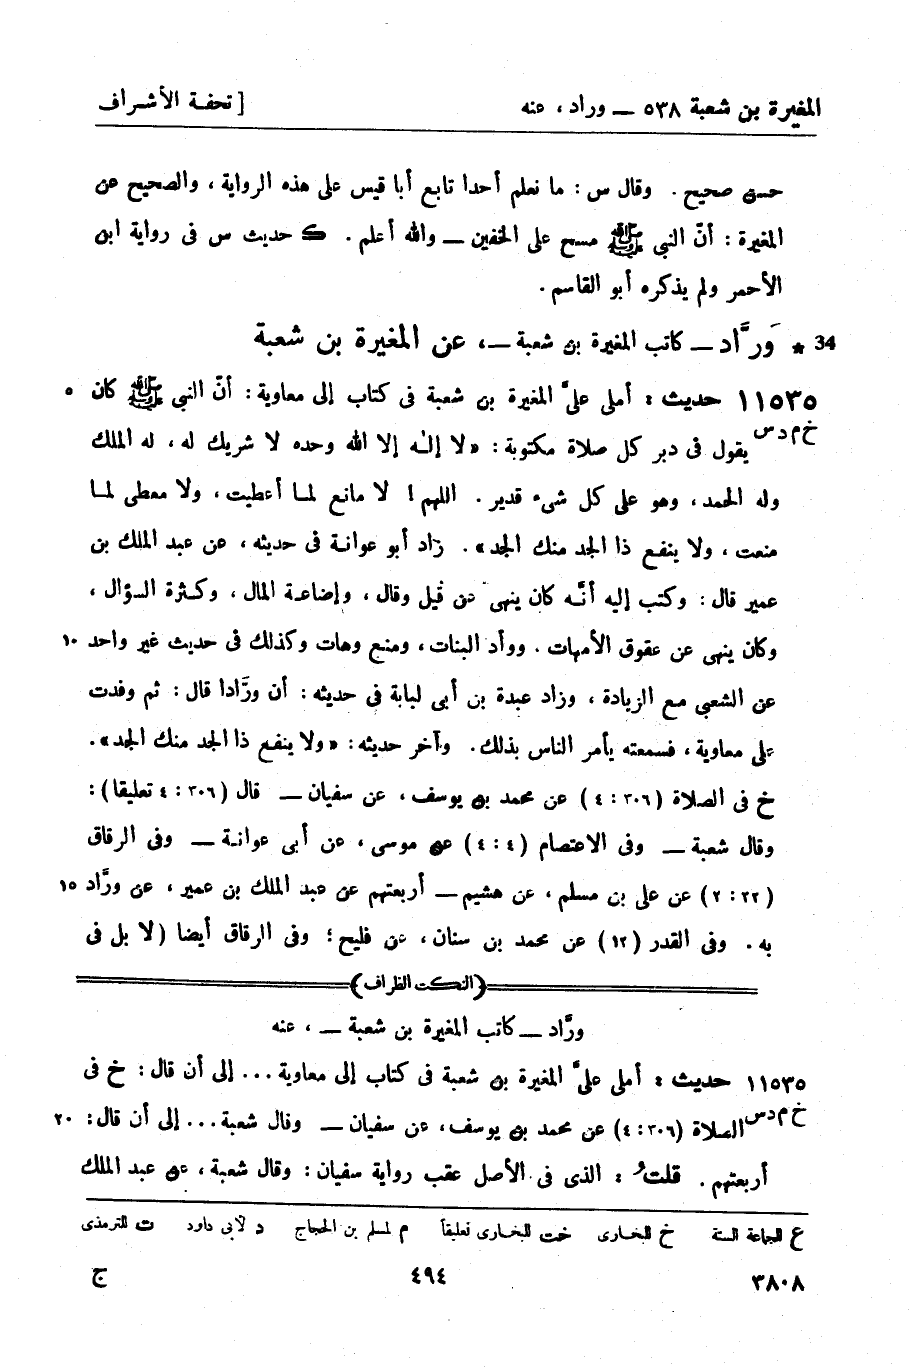 المغيرة بن شعبة ٥٣٨ ــ وراد ، عنه [ تحفة الأشراف
حسن صحيح . وقال س : ما نعلم أحدا تابع أبا قيس على هذه الرواية ، والصحيح عن
المغيرة : أنّ النبي ﷺ مسح على الخفين ــ والله أعلم . ك حديث س فى رواية ابن
الأحمر ولم يذكره أبو القاسم .
34 * وَرَّاد ــ كاتب المغيرة بن شعبة ــ، عن المغيرة بن شعبة
١١٥٣٥ حديث : أملى علىَّ المغيرة بن شعبة فى كتاب إلى معاوية : أنّ النبى ﷺ كان ٥
خ م د س يقول فى دبر كل صلاة مكتوبة : «لا إلٰه إلا الله وحده لا شريك له ، له الملك
وله الحمد ، وهو على كل شىء قدير . اللهم ! لا مانع لما أعطيت ، ولا معطى لما
منعت ، ولا ينفع ذا الجد منك الجد» . زاد أبو عوانة فى حديثه ، عن عبد الملك بن
عمير قال : وكتب إليه أنَّه كان ينهى عن قيل وقال ، وإضاعة المال ، وكثرة السؤال ،
وكان ينهى عن عقوق الأمهات . ووأد البنات ، ومنع وهات وكذلك فى حديث غير واحد ١٠
عن الشعبي مع الزيادة ، وزاد عبدة بن أبى لبابة فى حديثه : أن ورَّادا قال : ثم وفدت
على معاوية ، فسمعته يأمر الناس بذلك . وآخر حديثه : «ولا ينفع ذا الجد منك الجد» .
خ فى الصلاة (٣٠٦ : ٤) عن محمد بن يوسف ، عن سفيان ــ قال (٣٠٦ : ٤ تعليقا) :
وقال شعبة ــ وفى الاعتصام (٤ : ٤) عن موسى ، عن أبى عوانة ــ وفى الرقاق
(٢٢ : ٢) عن على بن مسلم ، عن هشيم ــ أربعتهم عن عبد الملك بن عمير ، عن ورَّاد ١٥
به . وفى القدر (١٢) عن محمد بن سنان ، عن فليح ؛ وفى الرقاق أيضا (لا بل فى
(النكت الظراف)
ورَّاد ــ كاتب المغيرة بن شعبة ــ ، عنه
١١٥٣٥ حديث : أملى علىَّ المغيرة بن شعبة فى كتاب إلى معاوية ... إلى أن قال : خ فى
خ م د س الصلاة (٣٠٦ : ٤) عن محمد بن يوسف ، عن سفيان ــ وقال شعبة ... إلى أن قال : ٢٠
أربعتهم . قلتُ : الذى فى الأصل عقب رواية سفيان : وقال شعبة ، عن عبد الملك
ع للجماعة الستة خ للبخارى خت للبخارى تعليقاً م لمسلم بن الحجاج د لأبى داود ت للترمذى
٣٨٠٨ ٤٩٤ ج